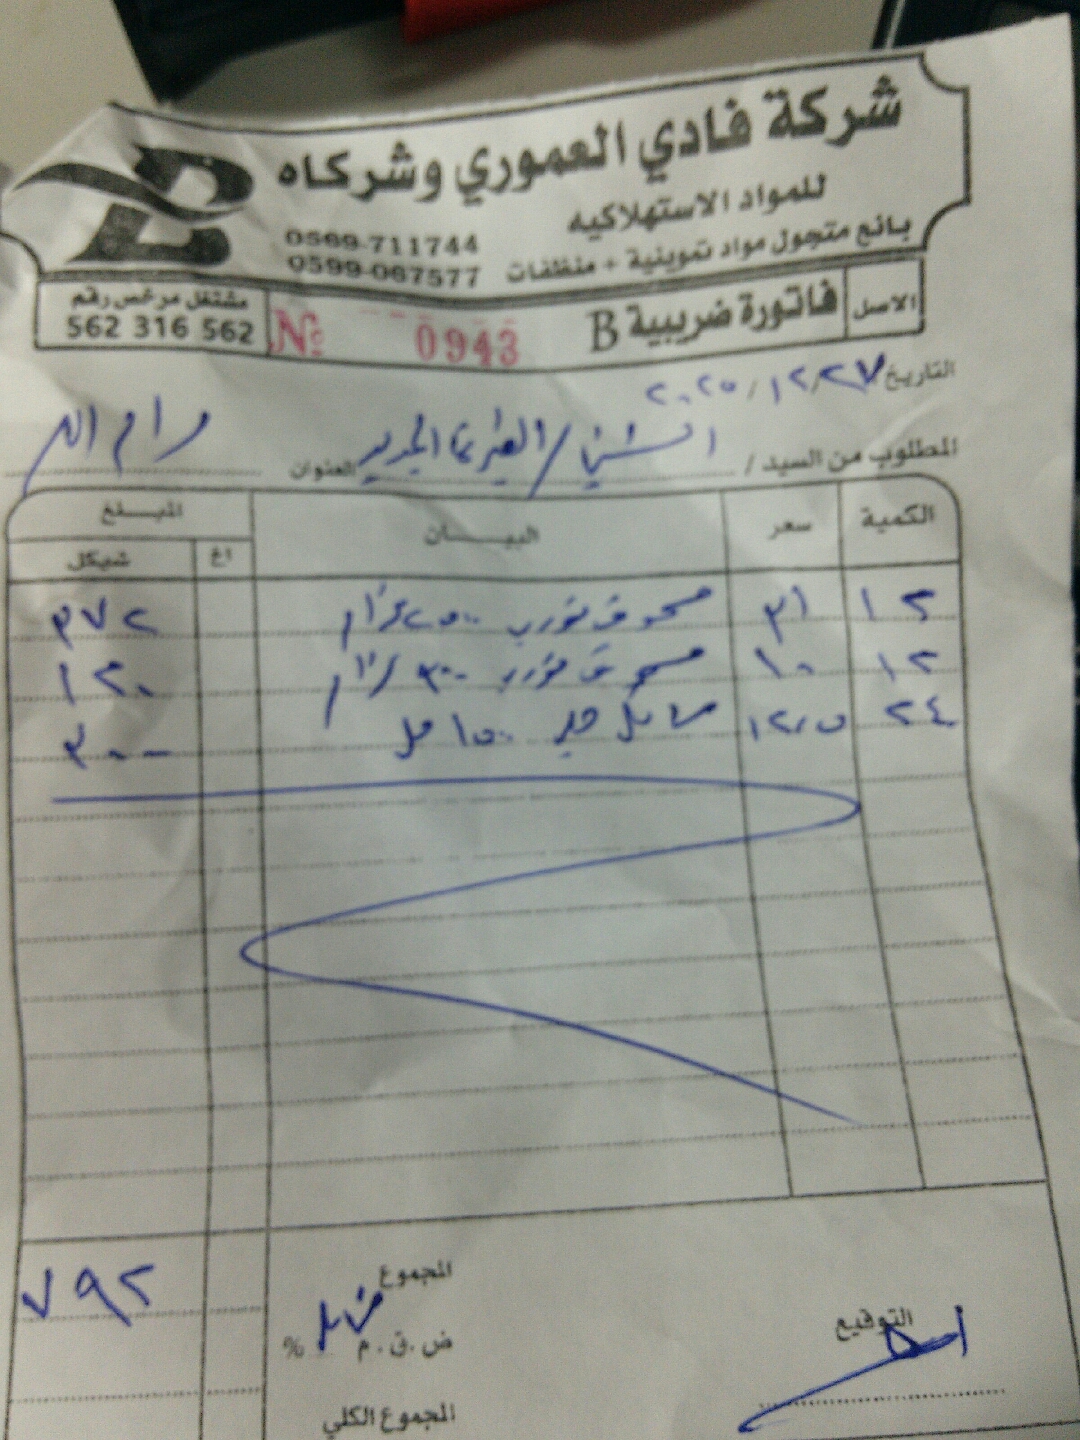 شركة فادي العموري وشركاه
للمواد الاستهلاكيه
0569-711744
بائع متجول مواد تموينية + منظفات
0599-067577
الاصل
فاتورة ضريبية B
№ 0943
مشتغل مرخص رقم
562 316 562
التاريخ ٢٠٢٥/١٢/٢٧
المطلوب من السيد / العنوان رام الله
الكمية سعر البيــــان المبـــلغ
اغ شيكل
١٢ ٣١ مسحوق ٢٥٠٠ غرام ٣٧٢
١٢ ١٠ مسحوق ٣٠٠ غرام ١٢٠
٢٤ ١٢٫٥ سائل جلي ١٥٠٠ مل ٣٠٠
المجموع ٧٩٢
ض.ق.م %
التوقيع
المجموع الكلي